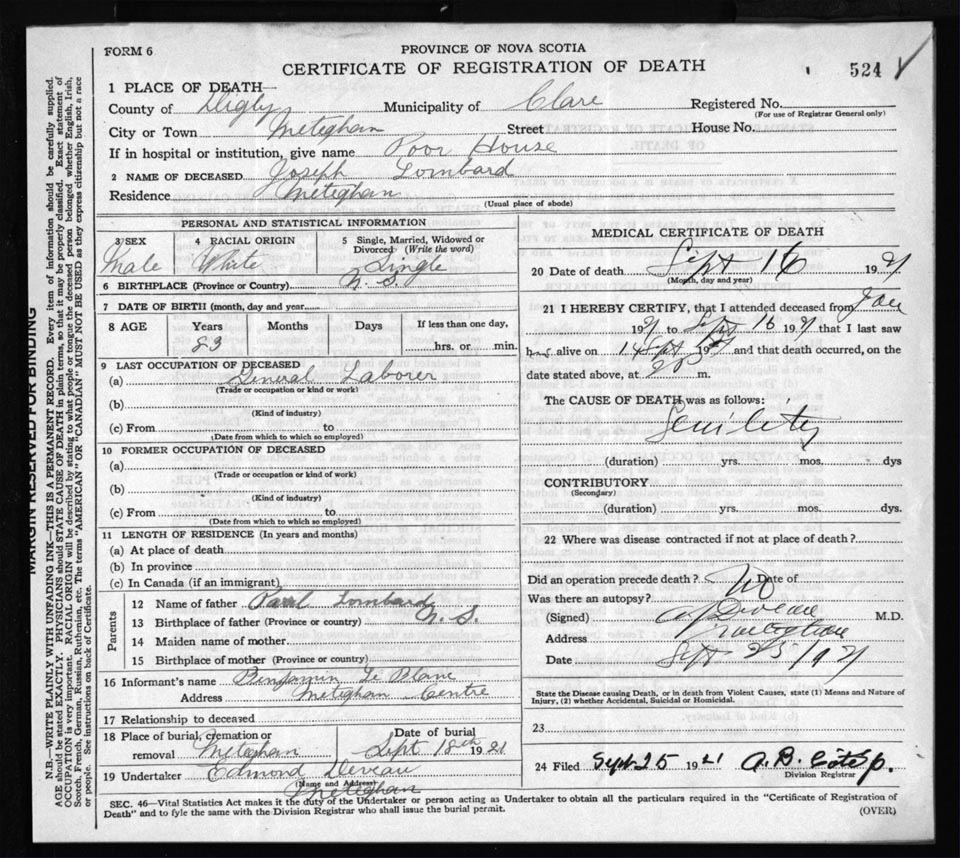 FORM 6
PROVINCE OF NOVA SCOTIA
CERTIFICATE OF REGISTRATION OF DEATH
524
MARGIN RESERVED FOR BINDING
N.B.—WRITE PLAINLY WITH UNFADING INK—THIS IS A PERMANENT RECORD. Every item of information should be carefully supplied.
AGE should be stated EXACTLY. PHYSICIANS should STATE CAUSE OF DEATH in plain terms, so that it may be properly classified. Exact statement of
OCCUPATION is very important. RACIAL ORIGIN will be described by stating to what people or tongue the deceased person belonged whether English, Irish,
Scotch, French, German, Russian, Ruthenian, etc. The terms "AMERICAN" OR "CANADIAN" MUST NOT BE USED as they express citizenship but not a race
or people. See instructions on back of Certificate.
1 PLACE OF DEATH—
County of Digby Municipality of Clare Registered No.
(For use of Registrar General only)
City or Town Meteghan Street House No.
If in hospital or institution, give name Poor House
2 NAME OF DECEASED Joseph Lombard
Residence Meteghan
(Usual place of abode)
PERSONAL AND STATISTICAL INFORMATION
3 SEX 4 RACIAL ORIGIN 5 Single, Married, Widowed or
Divorced (Write the word)
Male White Single
6 BIRTHPLACE (Province or Country) N. S.
7 DATE OF BIRTH (month, day and year)
8 AGE Years Months Days If less than one day,
83 hrs. or min.
9 LAST OCCUPATION OF DECEASED
(a) General Laborer
(Trade or occupation or kind of work)
(b)
(Kind of industry)
(c) From to
(Date from which to which so employed)
10 FORMER OCCUPATION OF DECEASED
(a)
(Trade or occupation or kind of work)
(b)
(Kind of industry)
(c) From to
(Date from which to which so employed)
11 LENGTH OF RESIDENCE (In years and months)
(a) At place of death
(b) In province
(c) In Canada (if an immigrant)
Parents
12 Name of father Paul Lombard
13 Birthplace of father (Province or country) N. S.
14 Maiden name of mother
15 Birthplace of mother (Province or country)
16 Informant's name Benjamin Le Blanc
Address Meteghan Centre
17 Relationship to deceased
18 Place of burial, cremation or Date of burial
removal Meteghan Sept 18th 1921
19 Undertaker Edmond Deveau
(Name and Address)
Meteghan
MEDICAL CERTIFICATE OF DEATH
20 Date of death Sept 16 1921
(Month, day and year)
21 I HEREBY CERTIFY, that I attended deceased from Jan
1921 to Sept 16 1921 that I last saw
him alive on 14 Sept 1921 and that death occurred, on the
date stated above, at m.
The CAUSE OF DEATH was as follows:
Senility
(duration) yrs. mos. dys
CONTRIBUTORY
(Secondary)
(duration) yrs. mos. dys.
22 Where was disease contracted if not at place of death?
Did an operation precede death? No Date of
Was there an autopsy?
(Signed) Deveau M.D.
Address Meteghan
Date Sept 25/1921
State the Disease causing Death, or in death from Violent Causes, state (1) Means and Nature of
Injury, (2) whether Accidental, Suicidal or Homicidal.
23
24 Filed Sept 25 1921 A. B.
Division Registrar
SEC. 46—Vital Statistics Act makes it the duty of the Undertaker or person acting as Undertaker to obtain all the particulars required in the "Certificate of Registration of
Death" and to fyle the same with the Division Registrar who shall issue the burial permit.
(OVER)